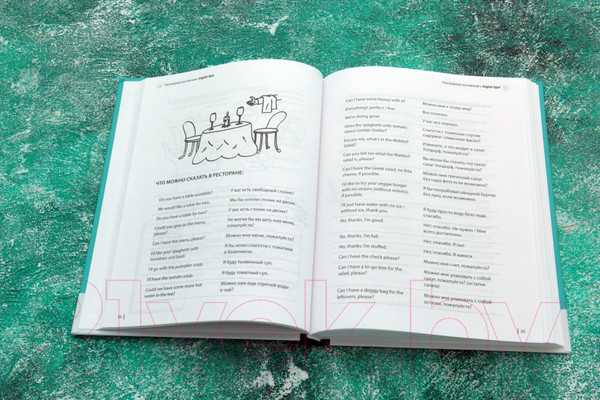 ЧТО МОЖНО СКАЗАТЬ В РЕСТОРАНЕ:
Do you have a table available?
У вас есть свободный столик?
We would like a table for two.
Мы бы хотели столик на двоих.
Do you have a table for two?
У вас есть столик на двоих?
Could you give us the menu,
please?
Не могли бы вы дать нам меню,
пожалуйста?
Can I have the menu, please?
Можно мне меню, пожалуйста?
I'd like your spaghetti with
tomatoes and basil.
Я бы хотел спагетти с томатами
и базиликом.
I'll go with the pumpkin soup.
Я буду тыквенный суп.
I'll have the tomato soup.
Я буду томатный суп.
Could we have some more hot
water in the tea?
Можно нам еще горячей воды
в чай?
Can I have some home wife is?
Everything's perfect / fine.
Все отлично.
We're doing great.
У нас все хорошо.
Does the spaghetti with tomato
sauce contain butter?
Спагетти с томатным соусом
содержат сливочное масло?
Excuse me, what's in the Waldorf
Salad?
Извините, а что входит в салат
Уолдорф, пожалуйста?
Can you tell me what the Waldorf
salad is, please?
Не могли бы сказать что такое
салат Уолдорф, пожалуйста?
Can I have the Greek salad, no feta
cheese, if possible.
Можно мне греческий салат,
без сыра фета если возможно?
I'd like to try your veggie burger
with no onions (without onions),
if possible.
Я бы попробовал овощной бургер
без лука, если возможно.
I'll just have water with no ice /
without ice, thank you.
Я буду просто воду безо льда,
спасибо.
No, thanks. I'm good.
Нет, спасибо. Не нужно / Мне
всего достаточно.
No, thanks. I'm full.
Нет, спасибо. Я сыт.
No, thanks, I'm stuffed.
Нет, спасибо. Я наелся.
Can I have the check please?
Можно мне счет, пожалуйста?
Can I have a to-go box for the
salad, please?
Можно мне упаковать с собой
салат, пожалуйста? (остатки
салата)
Can I have a doggy bag for the
leftovers, please?
Можно мне упаковать с собой
остатки, пожалуйста?
35
21vek.by